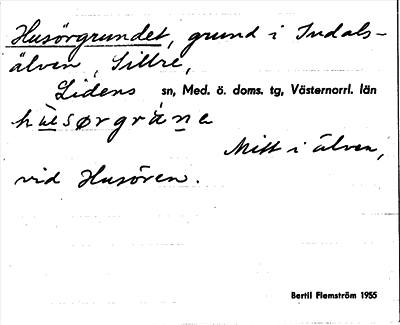 Husörgrundet, grund i Indals-
älven, Sillre,
Lidens sn, Med. ö. doms. tg, Västernorrl. län
Mitt i älven,
vid Husören.
Bertil Flemström 1955